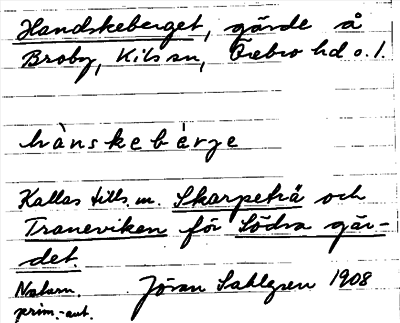 Handskeberget, gärde å
Broby, Kils sn, Örebro hd o. l.
hànskebèrje
Kallas tills. m. Skarpeträ och
Traneviken för Södra gär-
det.
Natarn. Jöran Sahlgren 1908
prim.-ant.